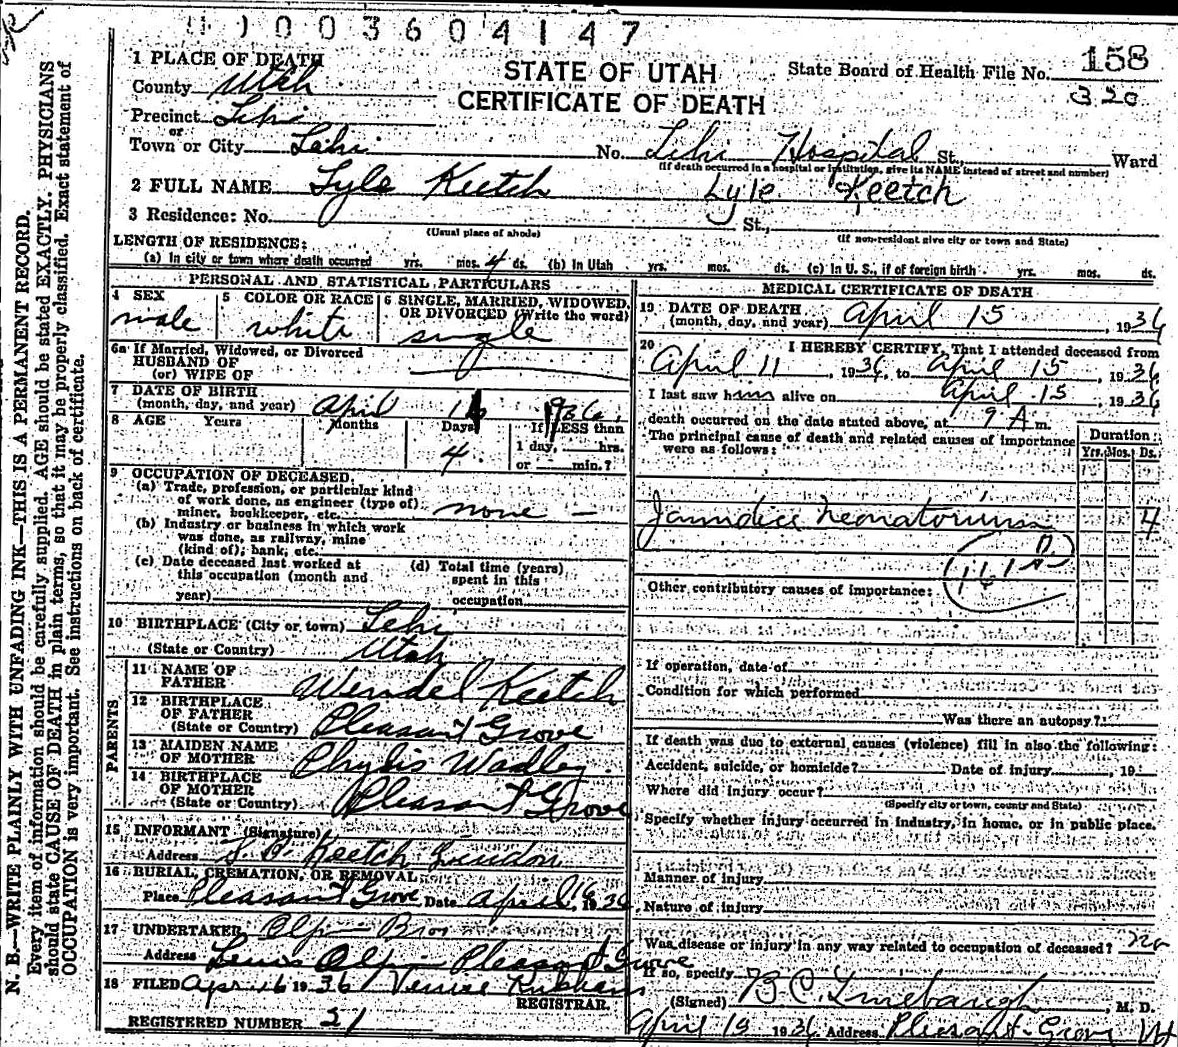 1 0 0 3 6 0 4 1 4 7
1 PLACE OF DEATH
County Utah
STATE OF UTAH
CERTIFICATE OF DEATH
State Board of Health File No. 158
320
Precinct Lehi
or
Town or City Lehi No. Lehi Hospital St., Ward
(If death occurred in a hospital or institution, give its NAME instead of street and number)
2 FULL NAME Lyle Keetch Lyle Keetch
3 Residence: No. St.,
(Usual place of abode) (If non-resident give city or town and State)
LENGTH OF RESIDENCE:
(a) In city or town where death occurred yrs. mos. 4 ds. (b) In Utah yrs. mos. ds. (c) In U. S., if of foreign birth yrs. mos. ds.
PERSONAL AND STATISTICAL PARTICULARS
4 SEX male
5 COLOR OR RACE white
6 SINGLE, MARRIED, WIDOWED, OR DIVORCED (Write the word) single
6a If Married, Widowed, or Divorced
HUSBAND OF
(or) WIFE OF
7 DATE OF BIRTH
(month, day, and year) April 1936
8 AGE Years Months Days If LESS than
4 1 day, hrs.
or min.?
9 OCCUPATION OF DECEASED
(a) Trade, profession, or particular kind
of work done, as engineer (type of)
miner, bookkeeper, etc. none
(b) Industry or business in which work
was done, as railway, mine
(kind of); bank, etc.
(c) Date deceased last worked at
this occupation (month and
year)
(d) Total time (years)
spent in this
occupation
10 BIRTHPLACE (City or town) Lehi
(State or Country) Utah
PARENTS
11 NAME OF
FATHER Wendel Keetch
12 BIRTHPLACE
OF FATHER
(State or Country) Pleasant Grove
13 MAIDEN NAME
OF MOTHER Phylis Wadley
14 BIRTHPLACE
OF MOTHER
(State or Country) Pleasant Grove
15 INFORMANT (Signature)
Address Keetch Lindon
16 BURIAL, CREMATION, OR REMOVAL
Place Pleasant Grove Date April 16, 1936
17 UNDERTAKER Olpin Bros
Address Olpin Pleasant Grove
18 FILED Apr 16 1936
REGISTRAR.
REGISTERED NUMBER 21
MEDICAL CERTIFICATE OF DEATH
19 DATE OF DEATH
(month, day, and year) April 15, 1936
20 I HEREBY CERTIFY, That I attended deceased from
April 11, 1936, to April 15, 1936
I last saw him alive on April 15, 1936
death occurred on the date stated above, at 9 A m.
The principal cause of death and related causes of importance
were as follows:
Duration
Yrs. Mos. Ds.
Jaundice Neonatorium 4
Other contributory causes of importance:
If operation, date of
Condition for which performed
Was there an autopsy?
If death was due to external causes (violence) fill in also the following:
Accident, suicide, or homicide? Date of injury , 19
Where did injury occur?
(Specify city or town, county and State)
Specify whether injury occurred in industry, in home, or in public place.
Manner of injury
Nature of injury
Was disease or injury in any way related to occupation of deceased? no
If so, specify
(Signed) B C Linebaugh, M. D.
April 1936 Address Pleasant Grove Ut
N. B.—WRITE PLAINLY WITH UNFADING INK—THIS IS A PERMANENT RECORD.
Every item of information should be carefully supplied. AGE should be stated EXACTLY. PHYSICIANS
should state CAUSE OF DEATH in plain terms, so that it may be properly classified. Exact statement of
OCCUPATION is very important. See instructions on back of certificate.